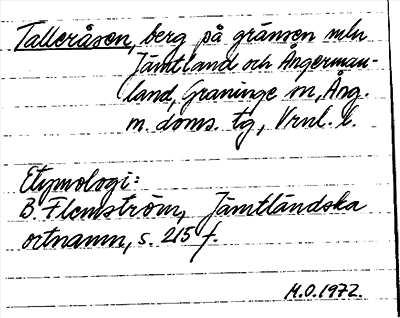 Talleråsen, berg på gränsen mln
Jämtland och Ångerman-
land, Graninge sn, Ång.
m. doms. tg, Vrnl. l.
Etymologi:
B. Flemström, Jämtländska
ortnamn, s. 215 f.
M.O. 1972.